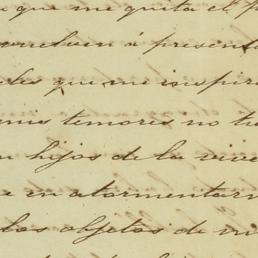 que me quita el
vuelven á present
des que me inspir
mis temores no tu
hijos de la vive
e en atormentarm
los objetos de mi